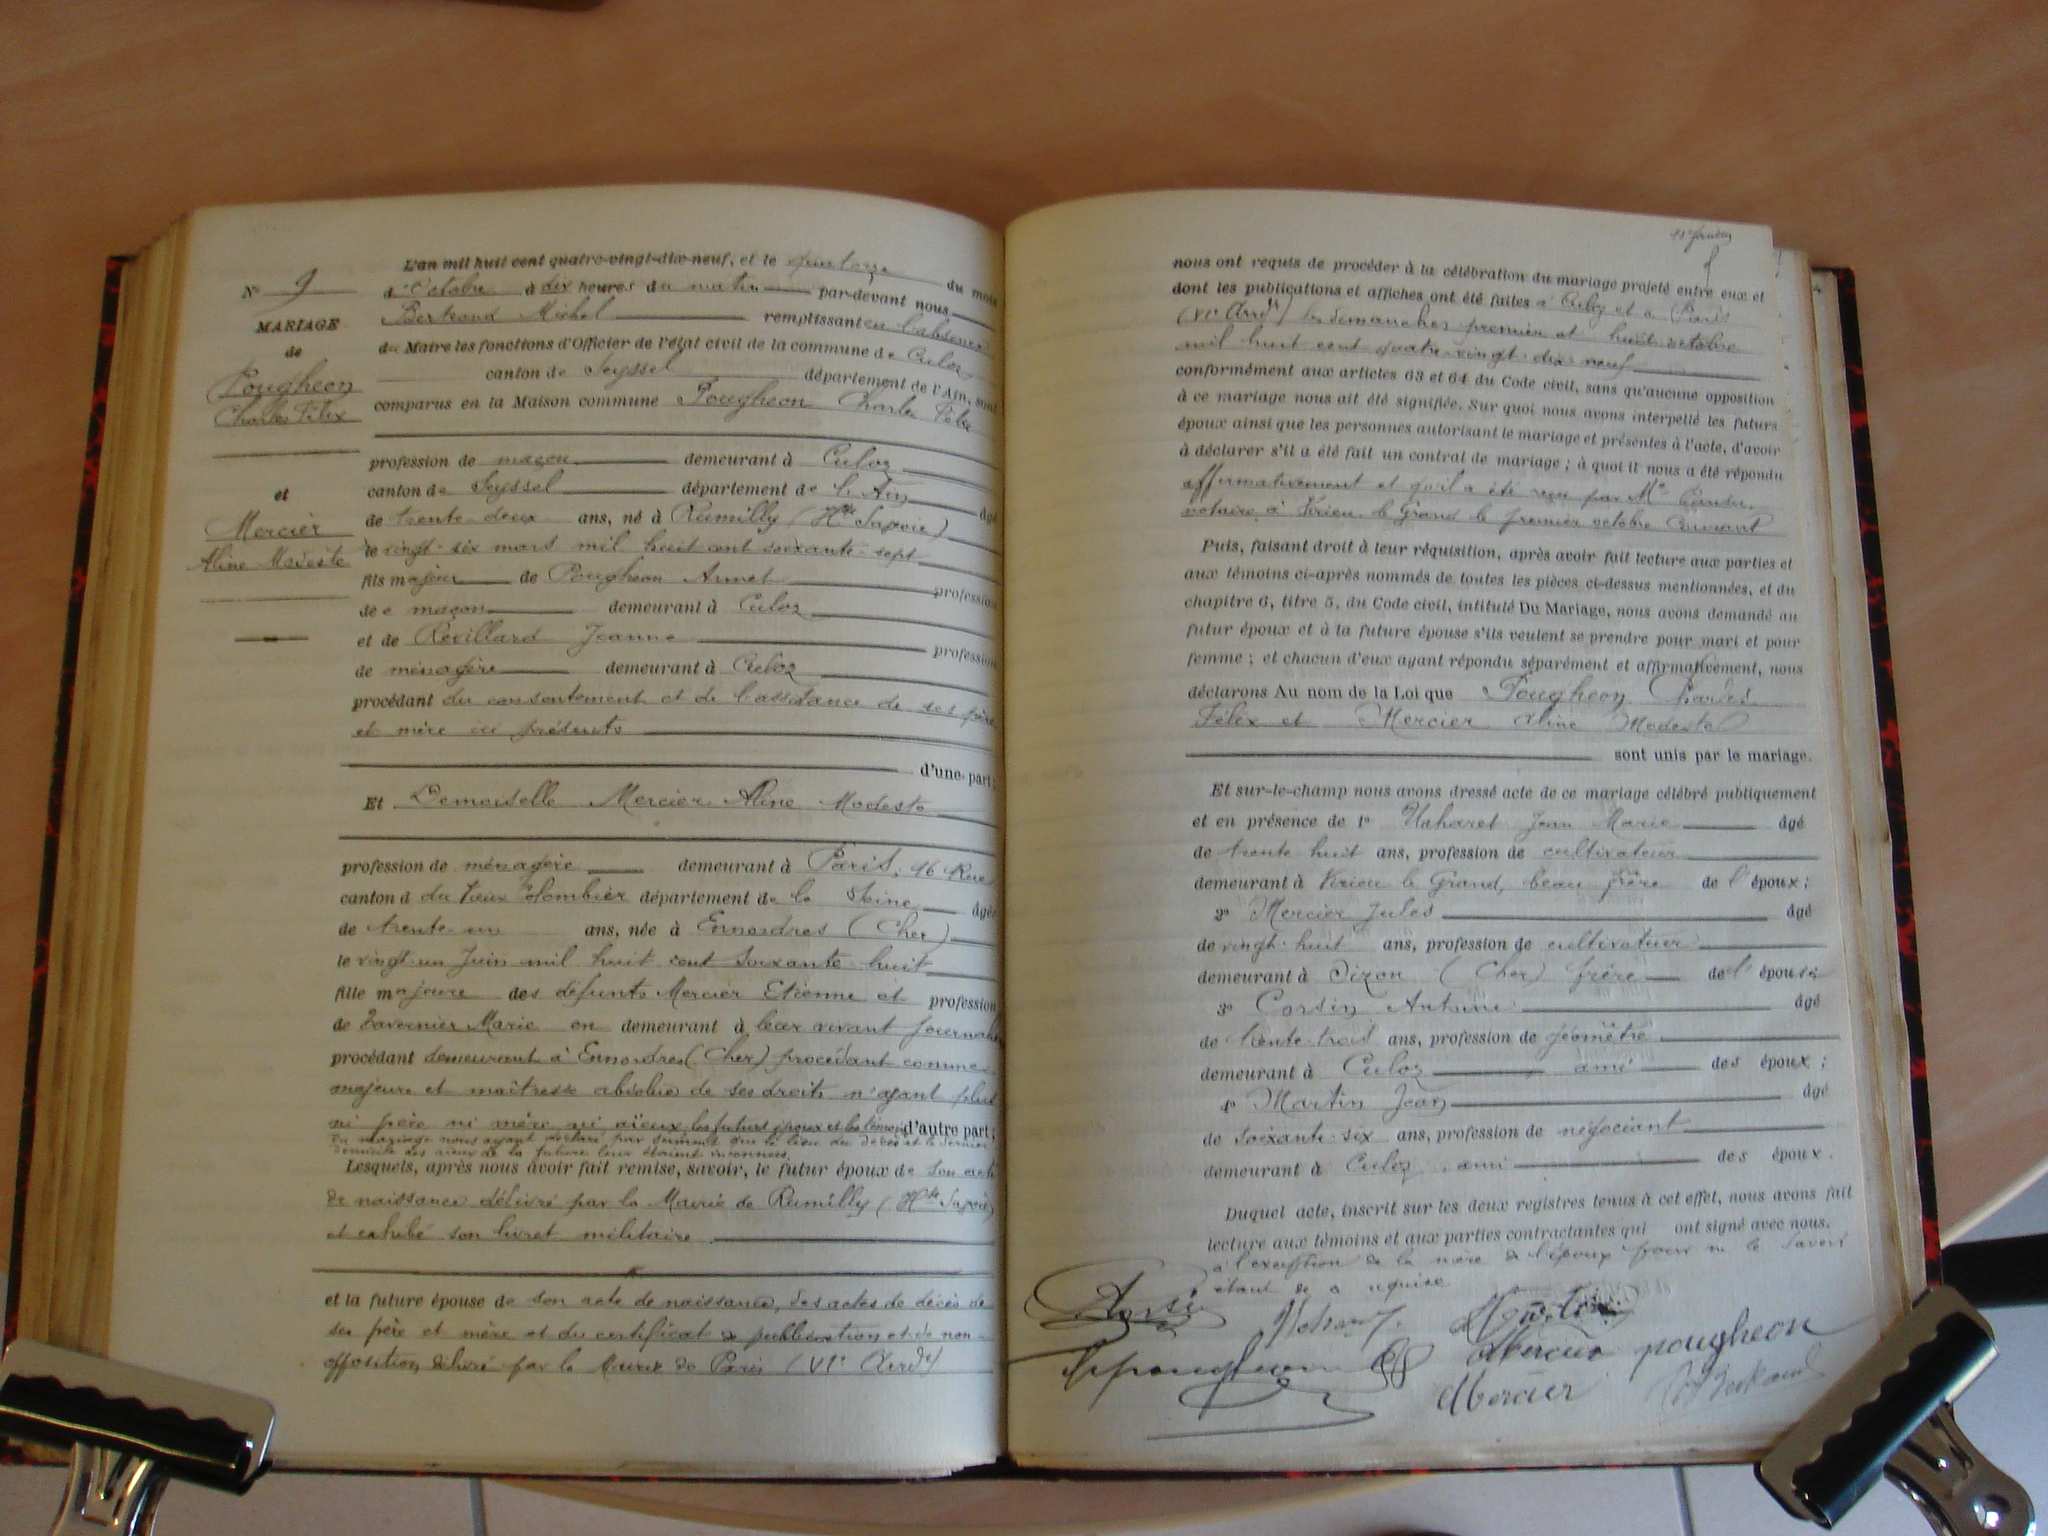 L'an mil huit cent quatre-vingt-dix-neuf, et le quatorze du mois
d'octobre à dix heures du matin par-devant nous
Bertrand Michel remplissant en l'absence
du Maire les fonctions d'Officier de l'état civil de la commune de Culoz
canton de Seyssel département de l'Ain, sont
comparus en la Maison commune Pougheon Charles Félix
profession de maçon demeurant à Culoz
canton de Seyssel département de l'Ain âgé
de trente-deux ans, né à Rumilly (Hte Savoie)
le vingt-six mars mil huit cent soixante-sept
fils majeur de Pougheon Aimé profession
de maçon demeurant à Culoz
et de Révillard Jeanne profession
de ménagère demeurant à Culoz
procédant du consentement et de l'assistance de ses père
et mère ici présents
d'une part;
Et Demoiselle Mercier Aline Modeste
profession de ménagère demeurant à Paris, 16 Rue
canton d du Vieux Colombier département de la Seine âgée
de trente-un ans, née à Ennordres (Cher)
le vingt-un Juin mil huit cent soixante-huit
fille majeure des défunts Mercier Etienne et profession
de Tavernier Marie en demeurant à leur vivant journaliers
procédant demeurant à Ennordres (Cher) procédant comme
majeure et maîtresse absolue de ses droits n'ayant plus
ni père ni mère ni aïeux les futurs époux et les témoins d'autre part;
du mariage nous ayant déclaré par serment que le lieu du décès et le dernier
domicile des aïeux de la future leur étaient inconnus.
Lesquels, après nous avoir fait remise, savoir, le futur époux de son acte
de naissance délivré par la Mairie de Rumilly (Hte Savoie)
et exhibé son livret militaire
et la future épouse de son acte de naissance, des actes de décès de
ses père et mère et du certificat de publication et de non-
opposition délivré par la Mairie de Paris (VIe Arrdt)
N° 9
MARIAGE
de
Pougheon
Charles Félix
et
Mercier
Aline Modeste
nous ont requis de procéder à la célébration du mariage projeté entre eux et
dont les publications et affiches ont été faites à Culoz et à Paris
(VIe Arrdt) les dimanches premier et huit octobre
mil huit cent quatre-vingt-dix-neuf
conformément aux articles 63 et 64 du Code civil, sans qu'aucune opposition
à ce mariage nous ait été signifiée. Sur quoi nous avons interpellé les futurs
époux ainsi que les personnes autorisant le mariage et présentes à l'acte, d'avoir
à déclarer s'il a été fait un contrat de mariage; à quoi il nous a été répondu
affirmativement et qu'il a été reçu par Me
notaire à Virieu le Grand le premier octobre courant
Puis, faisant droit à leur réquisition, après avoir fait lecture aux parties et
aux témoins ci-après nommés de toutes les pièces ci-dessus mentionnées, et du
chapitre 6, titre 5, du Code civil, intitulé Du Mariage, nous avons demandé au
futur époux et à la future épouse s'ils veulent se prendre pour mari et pour
femme; et chacun d'eux ayant répondu séparément et affirmativement, nous
déclarons Au nom de la Loi que Pougheon Charles
Félix et Mercier Aline Modeste
sont unis par le mariage.
Et sur-le-champ nous avons dressé acte de ce mariage célébré publiquement
et en présence de 1° Jean Marie âgé
de trente huit ans, profession de cultivateur
demeurant à Virieu le Grand, beau frère de l'époux;
2° Mercier Jules âgé
de vingt-huit ans, profession de cultivateur
demeurant à (Cher) frère de l'épouse
3° Corsin Antoine âgé
de trente-trois ans, profession de géomètre
demeurant à Culoz ami des époux;
4° Martin Jean âgé
de soixante-six ans, profession de négociant
demeurant à Culoz, ami des époux.
Duquel acte, inscrit sur les deux registres tenus à cet effet, nous avons fait
lecture aux témoins et aux parties contractantes qui ont signé avec nous.
à l'exception de la mère de l'époux pour ne le savoir
étant de ce requise
Mercier pougheon
Mercier